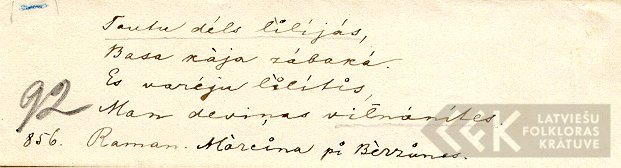 Tautu dēls lilījās,
Basa kāja zābakā.
Es varēju lilītis,
Man deviņas vilnānītes.
92
856. Raman. Mārciņa pi Bērzaunes.
LATVIEŠU
FOLKLORAS
KRĀTUVE